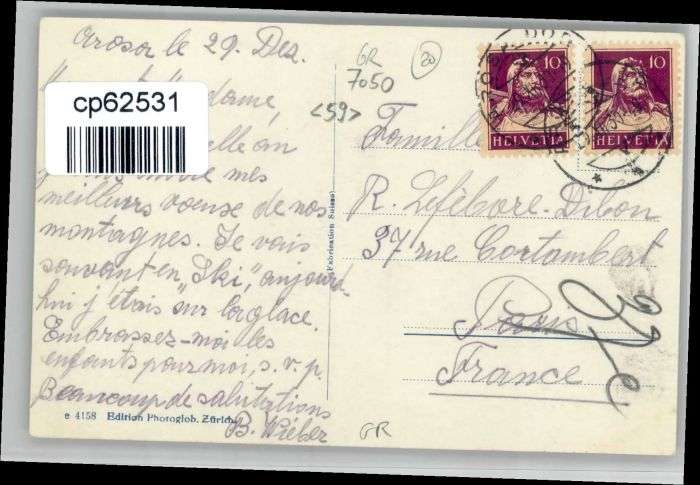 Arosa le 29. Des.
dame,
cp62531
elle an
mes
meilleurs voeuse de nos
montagnes. Je vais
souvant en "Ski", aujourd-
hui j'étais sur la glace.
Embrassez-moi les
enfants pour moi, s. v. p.
Beaucoup de salutations
B. Wieber
e 4158 Edition Photoglob, Zürich
Fabrication Suisse
GR
20
7050
<59>
10
HELVETIA
10
HELVETIA
Famille
R. Lefèbore-Dibon
37 rue Cortambert
Paris
France
GR